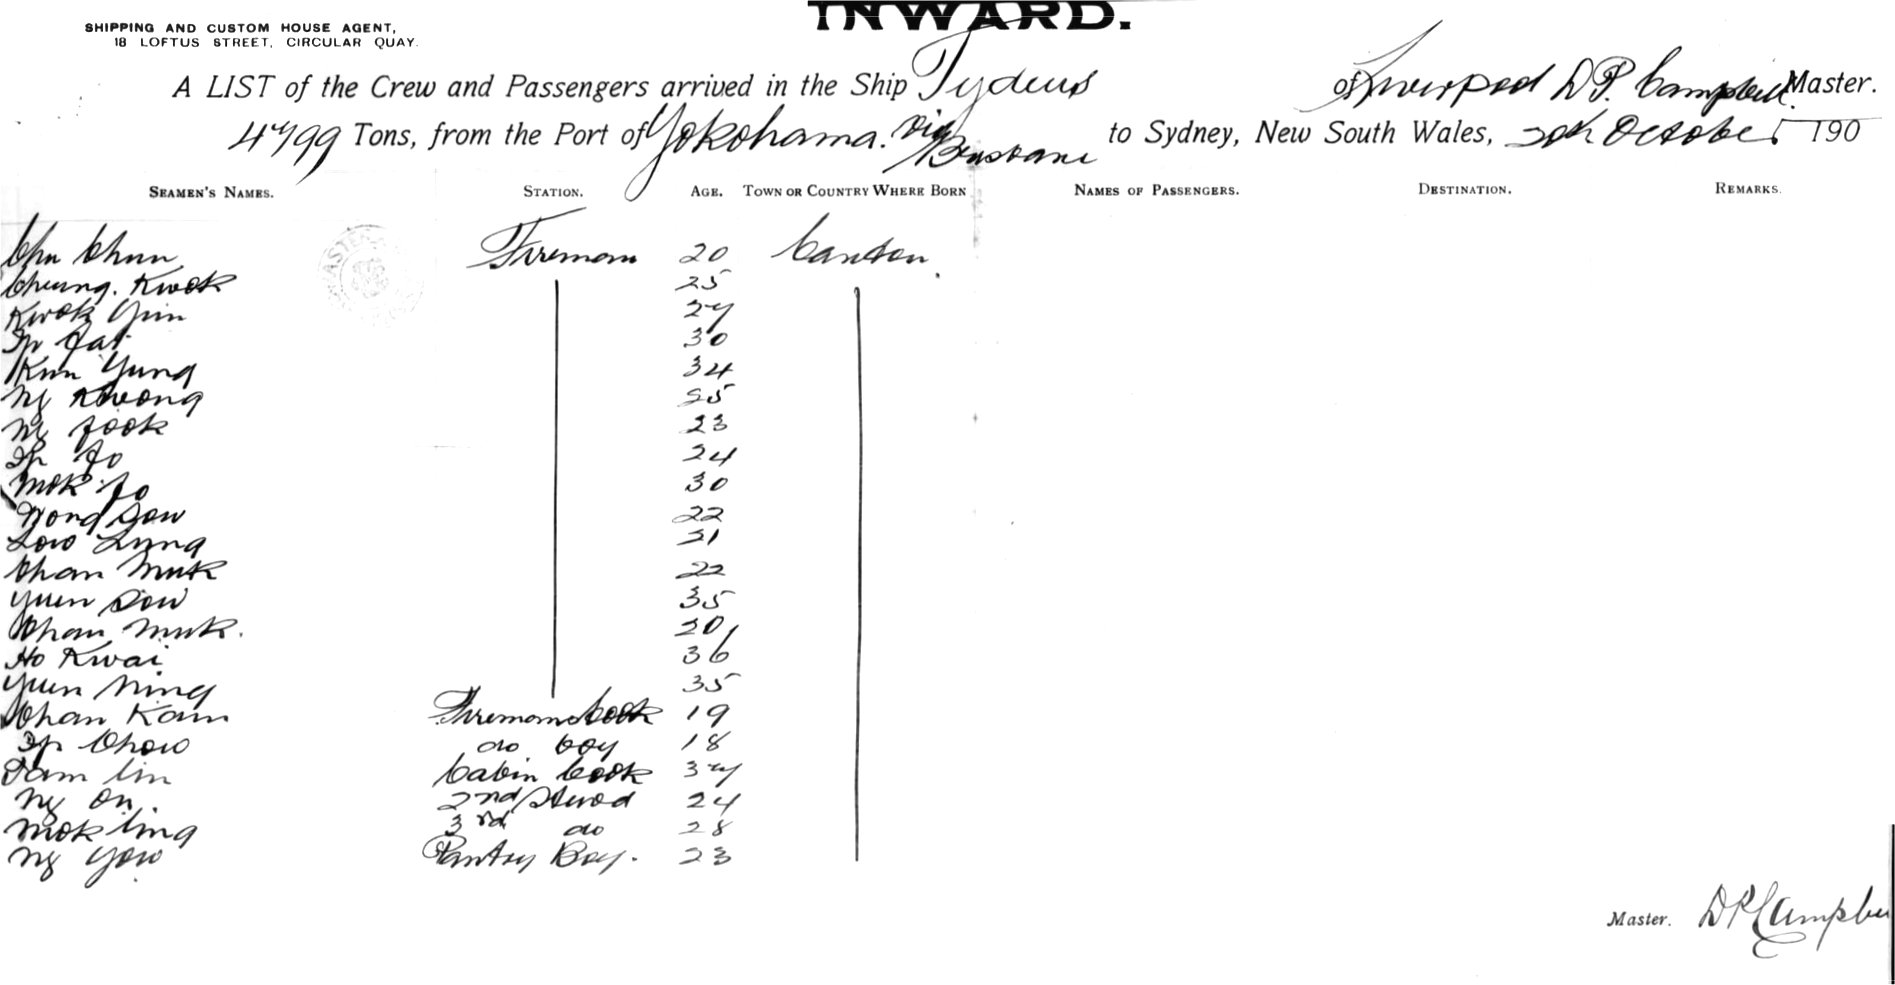 INWARD.
SHIPPING AND CUSTOM HOUSE AGENT,
18 LOFTUS STREET, CIRCULAR QUAY.
A LIST of the Crew and Passengers arrived in the Ship Tydeus of Liverpool D P. Campbell Master.
4799 Tons, from the Port of Yokohama. via Brisbane to Sydney, New South Wales, 20th October 190
SEAMEN'S NAMES. STATION. AGE. TOWN OR COUNTRY WHERE BORN NAMES OF PASSENGERS. DESTINATION. REMARKS.
Chu Chun Fireman 20 Canton.
Cheung. Kwok 25
Kwok Yim 27
Ip Fat 30
Kum Yung 34
Ng Kwong 25
Ng Fook 23
Ip Fo 24
Mok Fo 30
Wong Sow 22
Low Lung 21
Chan Muk 22
Yuen Sow 35
Chan Muk. 20
Ho Kwai 36
Yuen Ning 35
Chan Kam Firemans Cook 19
Ip Chow do boy 18
Tam Lin Cabin Cook 37
Ng On. 2nd Stwod 24
Mok Ling 3rd do 28
Ng Yow Pantry Boy. 23
Master. D P Campbe